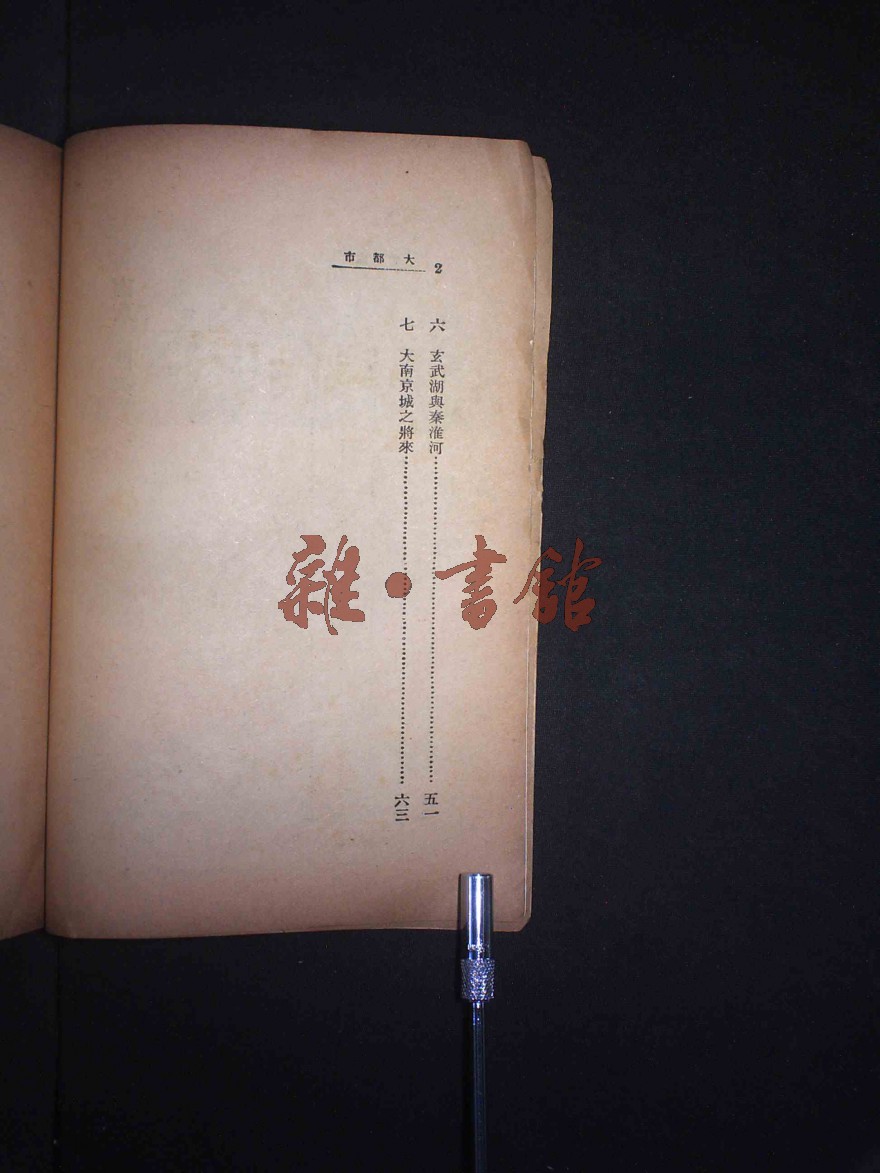 市都大 2
六 玄武湖與秦淮河……五一
七 大南京城之將來……六三
雜·書館